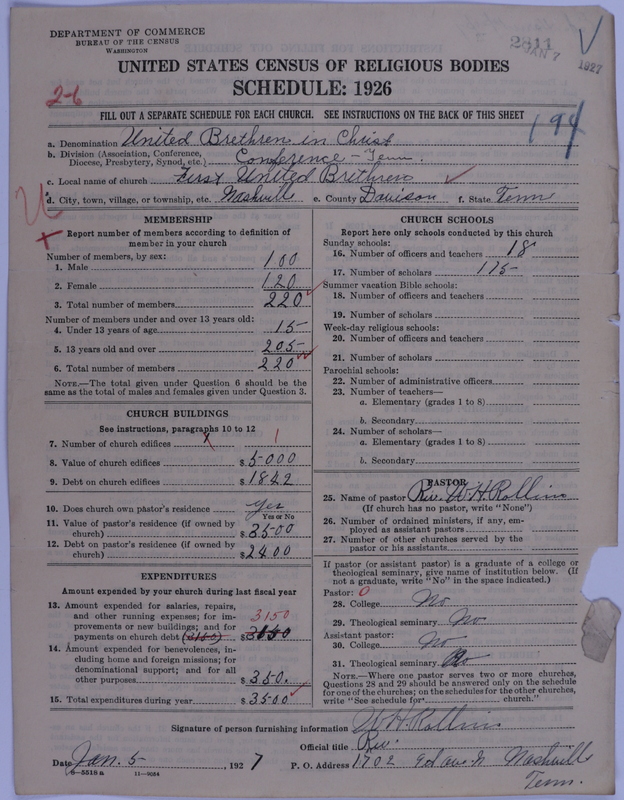 DEPARTMENT OF COMMERCE
BUREAU OF THE CENSUS
WASHINGTON
2811
JAN 7
1927
UNITED STATES CENSUS OF RELIGIOUS BODIES
SCHEDULE: 1926
2-6
194
FILL OUT A SEPARATE SCHEDULE FOR EACH CHURCH. SEE INSTRUCTIONS ON THE BACK OF THIS SHEET
a. Denomination United Brethren in Christ
b. Division (Association, Conference, Diocese, Presbytery, Synod, etc.) Conference - Tenn.
c. Local name of church First United Brethren
d. City, town, village, or township, etc. Nashville e. County Davison f. State Tenn
MEMBERSHIP
Report number of members according to definition of
member in your church
Number of members, by sex:
1. Male 100
2. Female 120
3. Total number of members 220
Number of members under and over 13 years old:
4. Under 13 years of age 15
5. 13 years old and over 205
6. Total number of members 220
NOTE.—The total given under Question 6 should be the
same as the total of males and females given under Question 3.
CHURCH BUILDINGS
See instructions, paragraphs 10 to 12
7. Number of church edifices 1
8. Value of church edifices $5000
9. Debt on church edifices $1842
10. Does church own pastor's residence Yes
Yes or No
11. Value of pastor's residence (if owned by
church) $3500
12. Debt on pastor's residence (if owned by
church) $2400
EXPENDITURES
Amount expended by your church during last fiscal year
13. Amount expended for salaries, repairs,
and other running expenses; for im- 3150
provements or new buildings; and for
payments on church debt (3150) $
14. Amount expended for benevolences, in-
cluding home and foreign missions; for
denominational support; and for all
other purposes $350.
15. Total expenditures during year $3500
CHURCH SCHOOLS
Report here only schools conducted by this church
Sunday schools:
16. Number of officers and teachers 18
17. Number of scholars 175
Summer vacation Bible schools:
18. Number of officers and teachers
19. Number of scholars
Week-day religious schools:
20. Number of officers and teachers
21. Number of scholars
Parochial schools:
22. Number of administrative officers
23. Number of teachers—
a. Elementary (grades 1 to 8)
b. Secondary
24. Number of scholars—
a. Elementary (grades 1 to 8)
b. Secondary
PASTOR
25. Name of pastor Rev. W. H. Rollins
(If church has no pastor, write "None")
26. Number of ordained ministers, if any, em-
ployed as assistant pastors
27. Number of other churches served by the
pastor or his assistants
If pastor (or assistant pastor) is a graduate of a college or
theological seminary, give name of institution below. (If
not a graduate, write "No" in the space indicated.)
Pastor: 0
28. College No
29. Theological seminary No
Assistant pastor:
30. College No
31. Theological seminary No
NOTE.—Where one pastor serves two or more churches,
Questions 28 and 29 should be answered only on the schedule
for one of the churches; on the schedules for the other churches,
write "See schedule for church."
Signature of person furnishing information W H Rollins
Official title Rev.
Date Jan. 5, 1927 P. O. Address 1702 Ave N Nashville
Tenn.
6—5518 a 11—9084